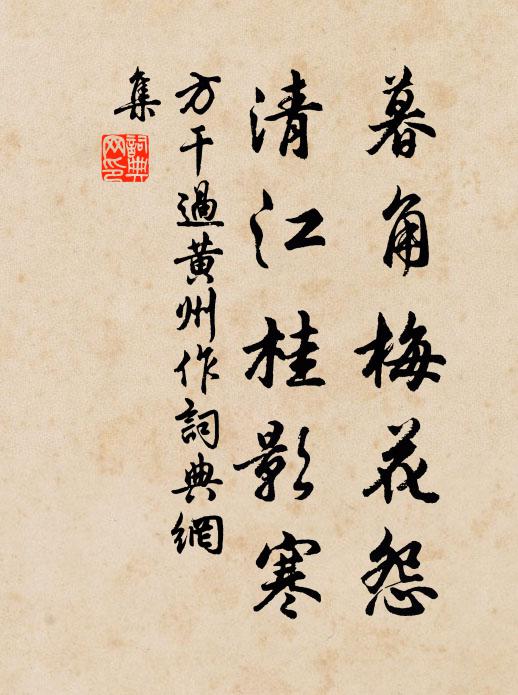 暮角梅花怨
清江桂影寒
方干過黄州作詞典網
集
詞典
网印